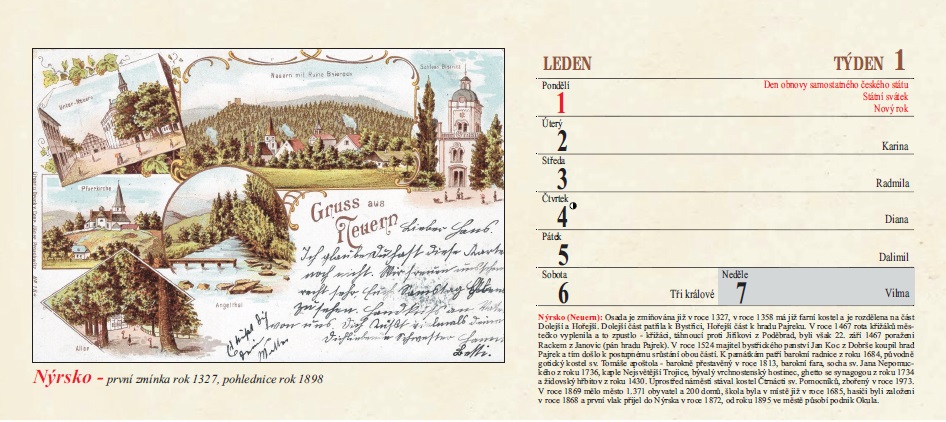 Unter-Neuern
Neuern mit Ruine Baiereck
Schloss Bistritz
Pfarrkirche
Angelthal
Allee
Gruss aus
Neuern
Lieber Hans.
Nýrsko - první zmínka rok 1327, pohlednice rok 1898
LEDEN TÝDEN 1
Pondělí
1
Den obnovy samostatného českého státu
Státní svátek
Nový rok
Úterý
2 Karina
Středa
3 Radmila
Čtvrtek
4 Diana
Pátek
5 Dalimil
Sobota
6 Tři králové
Neděle
7 Vilma
Nýrsko (Neuern): Osada je zmiňována již v roce 1327, v roce 1358 má již farní kostel a je rozdělena na část
Dolejší a Hořejší. Dolejší část patřila k Bystřici, Hořejší část k hradu Pajreku. V roce 1467 rota křižáků měs-
tečko vyplenila a to zpustlo - křižáci, táhnoucí proti Jiříkovi z Poděbrad, byli však 22. září 1467 poraženi
Rackem z Janovic (pán hradu Pajrek). V roce 1524 majitel bystřického panství Jan Koc z Dobrše koupil hrad
Pajrek a tím došlo k postupnému srůstání obou částí. K památkám patří barokní radnice z roku 1684, původně
gotický kostel sv. Tomáše apoštola - barokně přestavěný v roce 1813, barokní fara, socha sv. Jana Nepomuc-
kého z roku 1736, kaple Nejsvětější Trojice, bývalý vrchnostenský hostinec, ghetto se synagogou z roku 1734
a židovský hřbitov z roku 1430. Uprostřed náměstí stával kostel Čtrnácti sv. Pomocníků, zbořený v roce 1973.
V roce 1869 mělo město 1.371 obyvatel a 200 domů, škola byla v místě již v roce 1685, hasiči byli založeni
v roce 1868 a první vlak přijel do Nýrska v roce 1872, od roku 1895 ve městě působí podnik Okula.